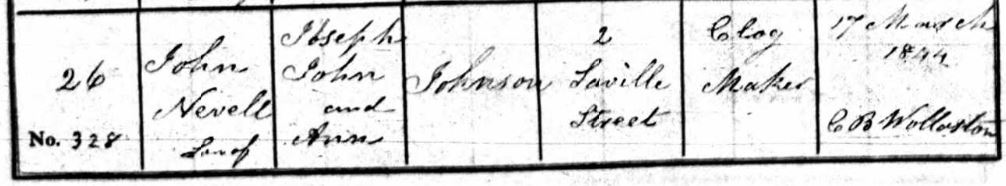 26
No. 328
John
Nevell
Son of
Joseph
John
and
Ann
Johnson
2
Saville
Street
Clog
Maker
17 March
1844
C B Wollaston